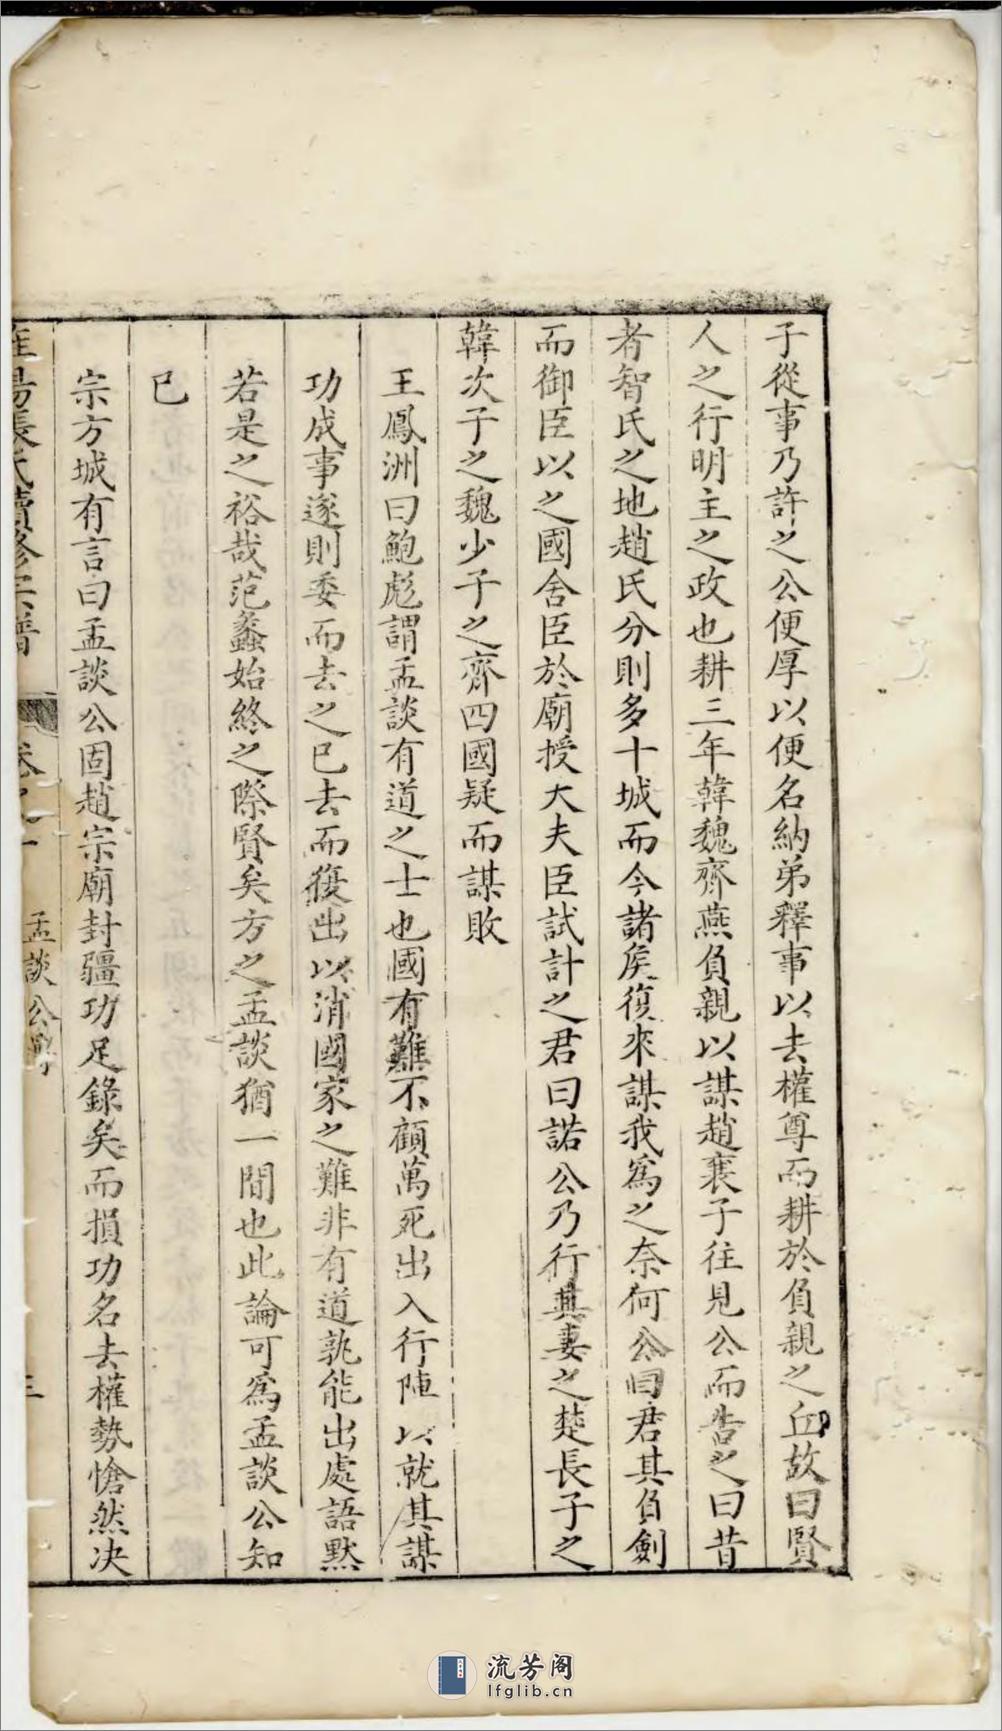 子從事乃許之公便厚以便名納弟釋事以去權尊而耕於負親之丘故曰賢
人之行明主之政也耕三年韓魏齊燕負親以謀趙襄子往見公而告之曰昔
者智氏之地趙氏分則多十城而今諸侯復來謀我爲之奈何公曰君其負劍
而御臣以之國舍臣於廟授大夫臣試計之君曰諾公乃行其妻之楚長子之
韓次子之魏少子之齊四國疑而謀敗
王鳳洲曰鮑彪謂孟談有道之士也國有難不顧萬死出入行陣以就其謀
功成事遂則委而去之已去而復出以消國家之難非有道孰能出處語默
若是之裕哉范蠡始終之際賢矣方之孟談猶一間也此論可爲孟談公知
已
宗方城有言曰孟談公固趙宗廟封疆功足錄矣而損功名去權勢愴然决
張氏續修宗譜 卷之一 孟談公 三
流芳阁
lfglib.cn